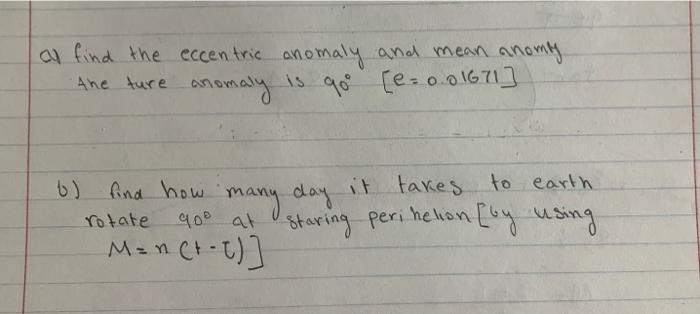 a) find the eccentric anomaly and mean anomly
the ture anomaly is 90° [e = 0.01671]
b) find how many day it takes to earth
rotate 90° at staring perihelion [by using
M = n (t - τ)]